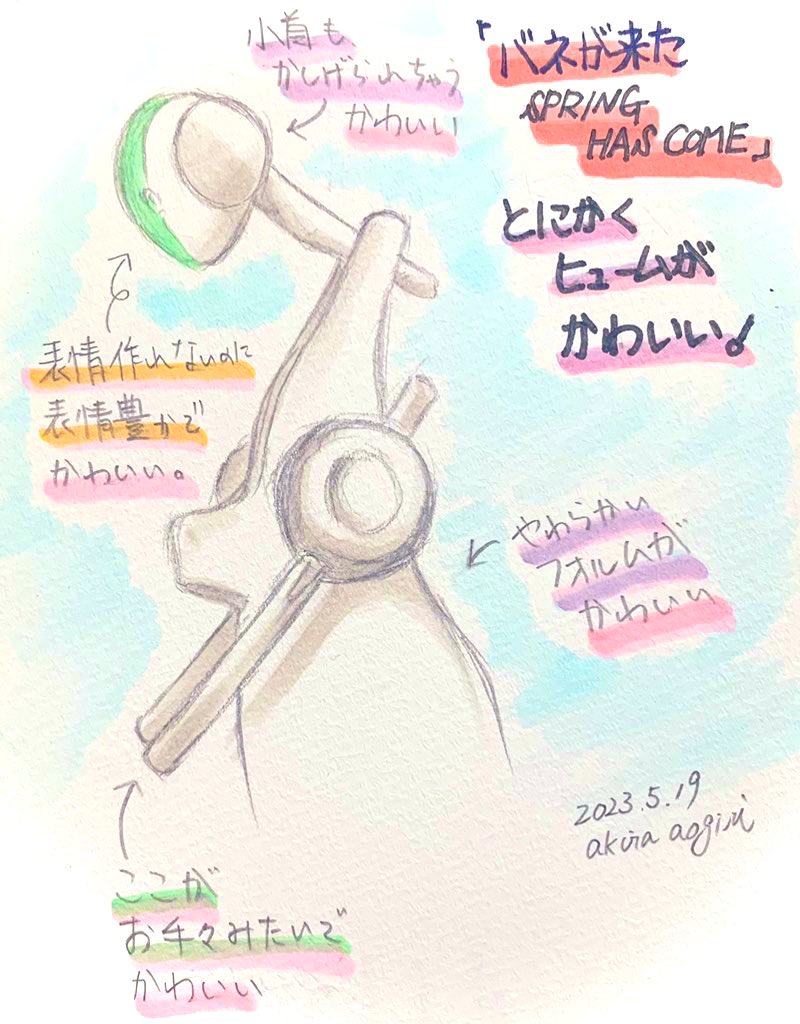 小首も
かしげられちゃう
かわいい
「バネが来た
SPRING
HAS COME」
とにかく
ヒュームが
かわいい!
表情作れないのに
表情豊かで
かわいい。
やわらかい
フォルムが
かわいい
ここが
お手々みたいで
かわいい
2023.5.19
akira aogiri